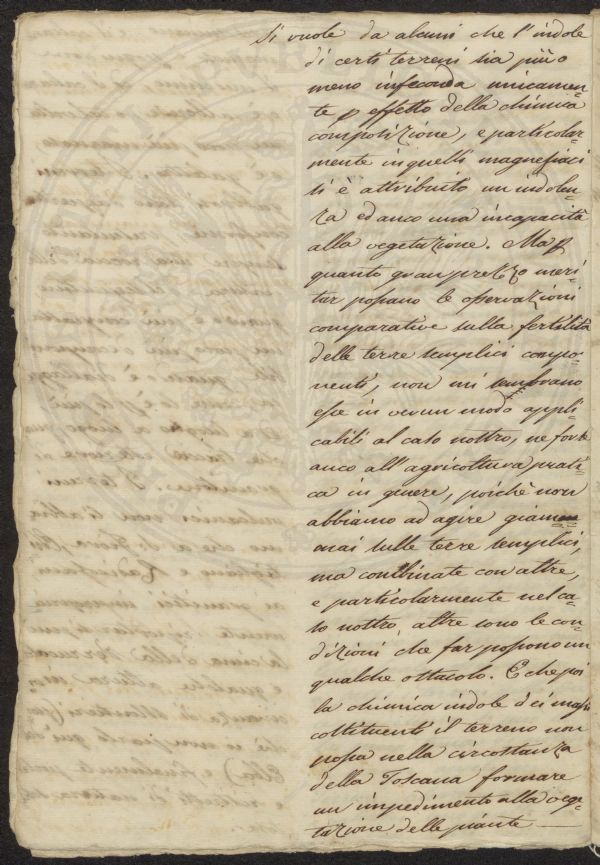 Si vuole da alcuni che l'indole
di certi terreni sia più o
meno infeconda unicamen=
te p effetto della chimica
composizione, e particolar=
mente in quelli magnesiaci
si è attribuito un indolen=
za ed anco una incapacità
alla vegetazione. Ma p
quanto gran prezzo meri=
tar possano le osservazioni
comparative sulla fertilità
delle terre semplici compo=
nenti, non mi sembrano
esse in verun modo appli=
cabili al caso nostro, ne forse
anco all'agricoltura prati=
ca in genere, poichè non
abbiamo ad agire giam=
mai sulle terre semplici,
ma combinate con altre,
e particolarmente nel ca=
so nostro, altre sono le con=
dizioni che far possono un
qualche ostacolo. E che poi
la chimica indole dei massi
costituenti il terreno non
possa nella circostanza
della Toscana formare
un impedimento alla vege=
tazione delle piante